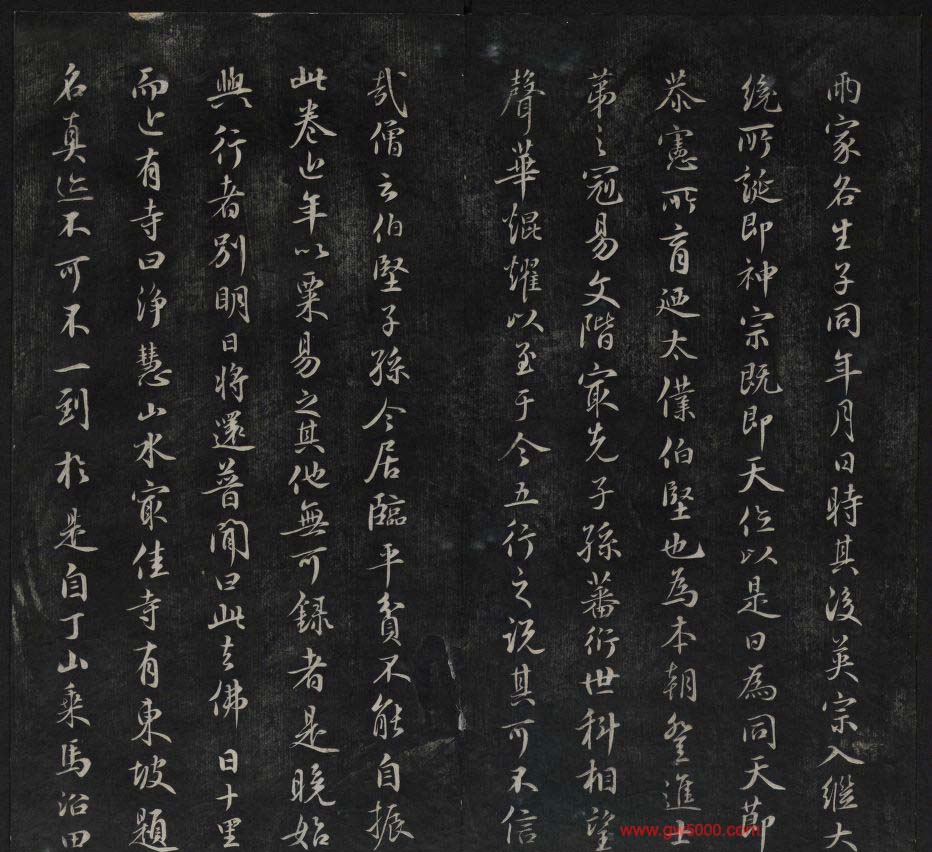 兩家各生子同年月日時其後英宗入繼大
統所誕即神宗既即天位以是日為同天節
恭憲所育迺太僕伯堅也為本朝登進士
第之冠易文階冣先子孫蕃衍世科相望
聲華焜耀以至于今五行之說其可不信
哉僧云伯堅子孫今居臨平貧不能自振
此卷近年以粟易之其他無可錄者是晚始
與行者別明日將還普聞曰此去佛日十里
而近有寺曰淨慧山水冣佳寺有東坡題
名真迹不可不一到於是自丁山乘馬沿田
www.gw5000.com